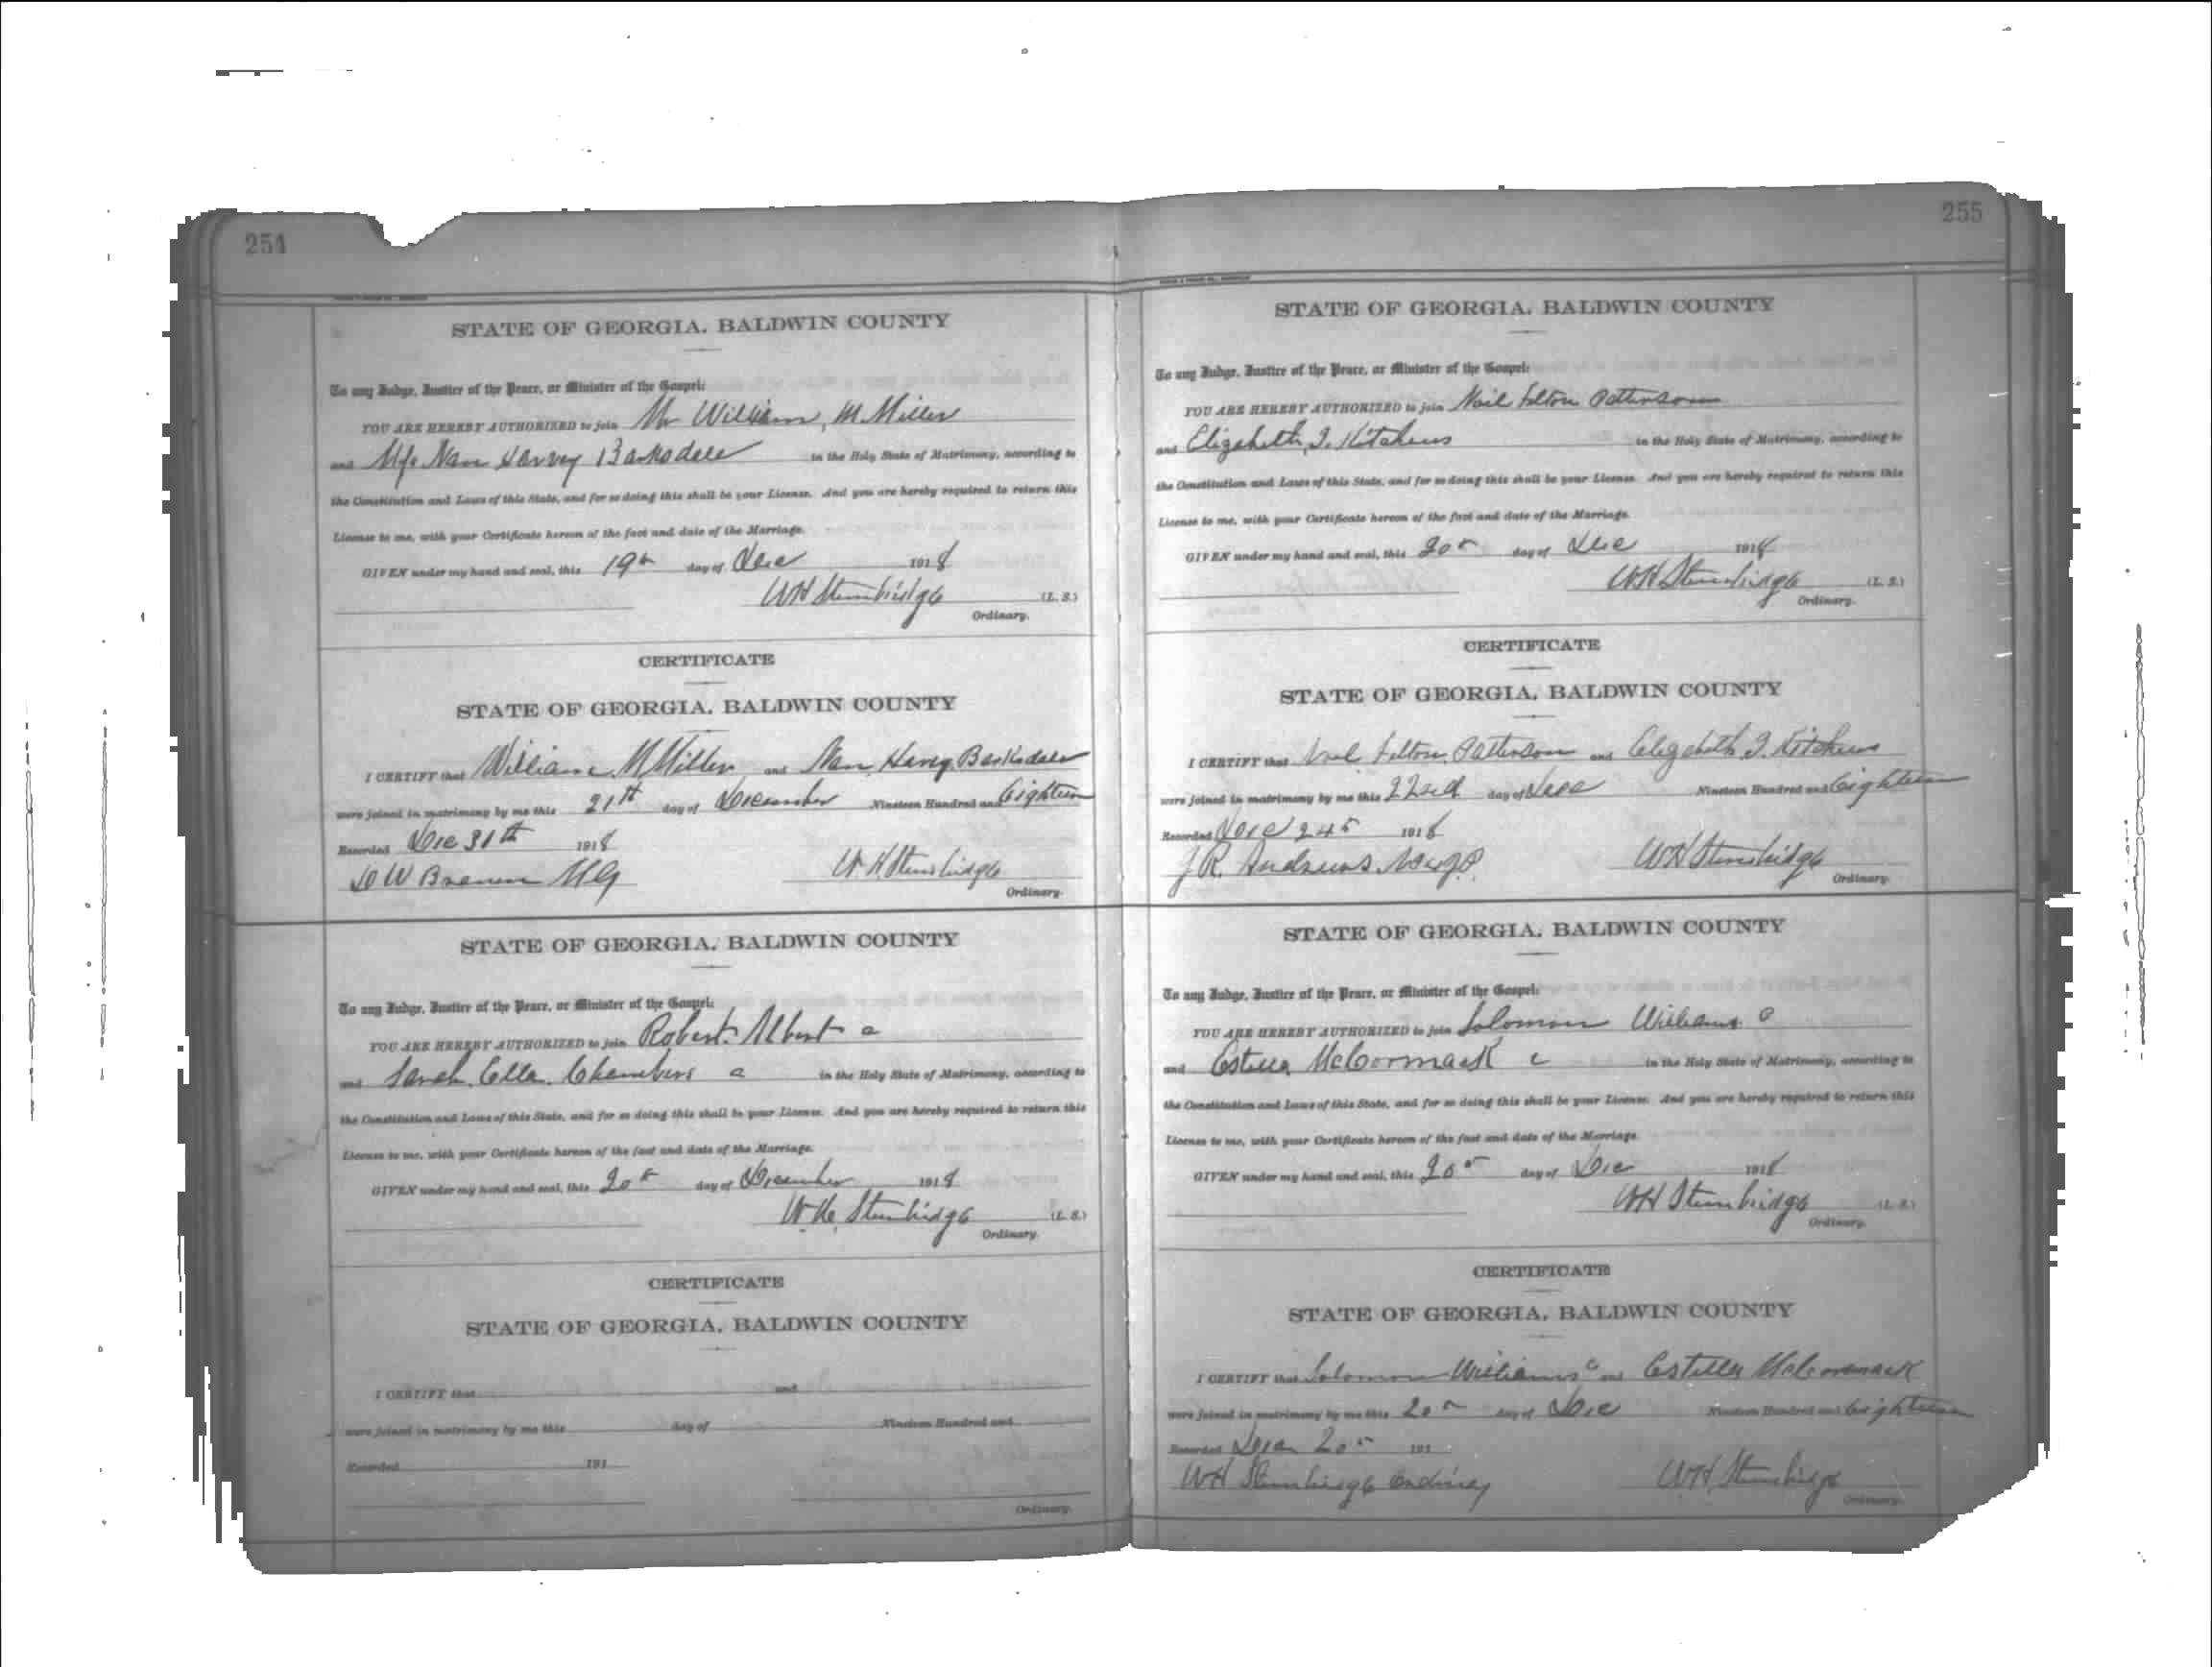 254
STATE OF GEORGIA, BALDWIN COUNTY
To any Judge, Justice of the Peace, or Minister of the Gospel:
YOU ARE HEREBY AUTHORIZED to join Mr William, M. Miller
and Nan Harvey Barksdale in the Holy State of Matrimony, according to
the Constitution and Laws of this State, and for so doing this shall be your License. And you are hereby required to return this
License to me, with your Certificate hereon of the fact and date of the Marriage.
GIVEN under my hand and seal, this 19th day of Dec 1918
WH Stembridge (L. S.)
Ordinary.
CERTIFICATE
STATE OF GEORGIA, BALDWIN COUNTY
I CERTIFY that William M Miller and Nan Harvey Barksdale
were joined in matrimony by me this 21th day of December Nineteen Hundred and Eighteen
Recorded Dec 31th 1918
W Brown MG W. H. Stembridge
Ordinary.
STATE OF GEORGIA, BALDWIN COUNTY
To any Judge, Justice of the Peace, or Minister of the Gospel:
YOU ARE HEREBY AUTHORIZED to join Robert Albert c
and Sarah Ella Chambers c in the Holy State of Matrimony, according to
the Constitution and Laws of this State, and for so doing this shall be your License. And you are hereby required to return this
License to me, with your Certificate hereon of the fact and date of the Marriage.
GIVEN under my hand and seal, this 20th day of December 1918
W H Stembridge (L. S.)
Ordinary.
CERTIFICATE
STATE OF GEORGIA, BALDWIN COUNTY
I CERTIFY that and
were joined in matrimony by me this day of Nineteen Hundred and
Recorded 191
Ordinary.
255
STATE OF GEORGIA, BALDWIN COUNTY
To any Judge, Justice of the Peace, or Minister of the Gospel:
YOU ARE HEREBY AUTHORIZED to join Neil Felton Patterson
and Elizabeth, I. Kitchens in the Holy State of Matrimony, according to
the Constitution and Laws of this State, and for so doing this shall be your License. And you are hereby required to return this
License to me, with your Certificate hereon of the fact and date of the Marriage.
GIVEN under my hand and seal, this 20th day of Dec 1918
WH Stembridge (L. S.)
Ordinary.
CERTIFICATE
STATE OF GEORGIA, BALDWIN COUNTY
I CERTIFY that Neil Felton Patterson and Elizabeth I. Kitchens
were joined in matrimony by me this 22nd day of Dec Nineteen Hundred and Eighteen
Recorded Dec 24th 1918
J R. Andrews WH Stembridge
Ordinary.
STATE OF GEORGIA, BALDWIN COUNTY
To any Judge, Justice of the Peace, or Minister of the Gospel:
YOU ARE HEREBY AUTHORIZED to join Solomon Williams C
and Estella McCormack c in the Holy State of Matrimony, according to
the Constitution and Laws of this State, and for so doing this shall be your License. And you are hereby required to return this
License to me, with your Certificate hereon of the fact and date of the Marriage.
GIVEN under my hand and seal, this 20th day of Dec 1918
WH Stembridge (L. S.)
Ordinary.
CERTIFICATE
STATE OF GEORGIA, BALDWIN COUNTY
I CERTIFY that Solomon Williams c and Estella McCormack
were joined in matrimony by me this 20th day of Dec Nineteen Hundred and Eighteen
Recorded Dec 20th 191
WH Stembridge Ordinary WH. Stembridge
Ordinary.